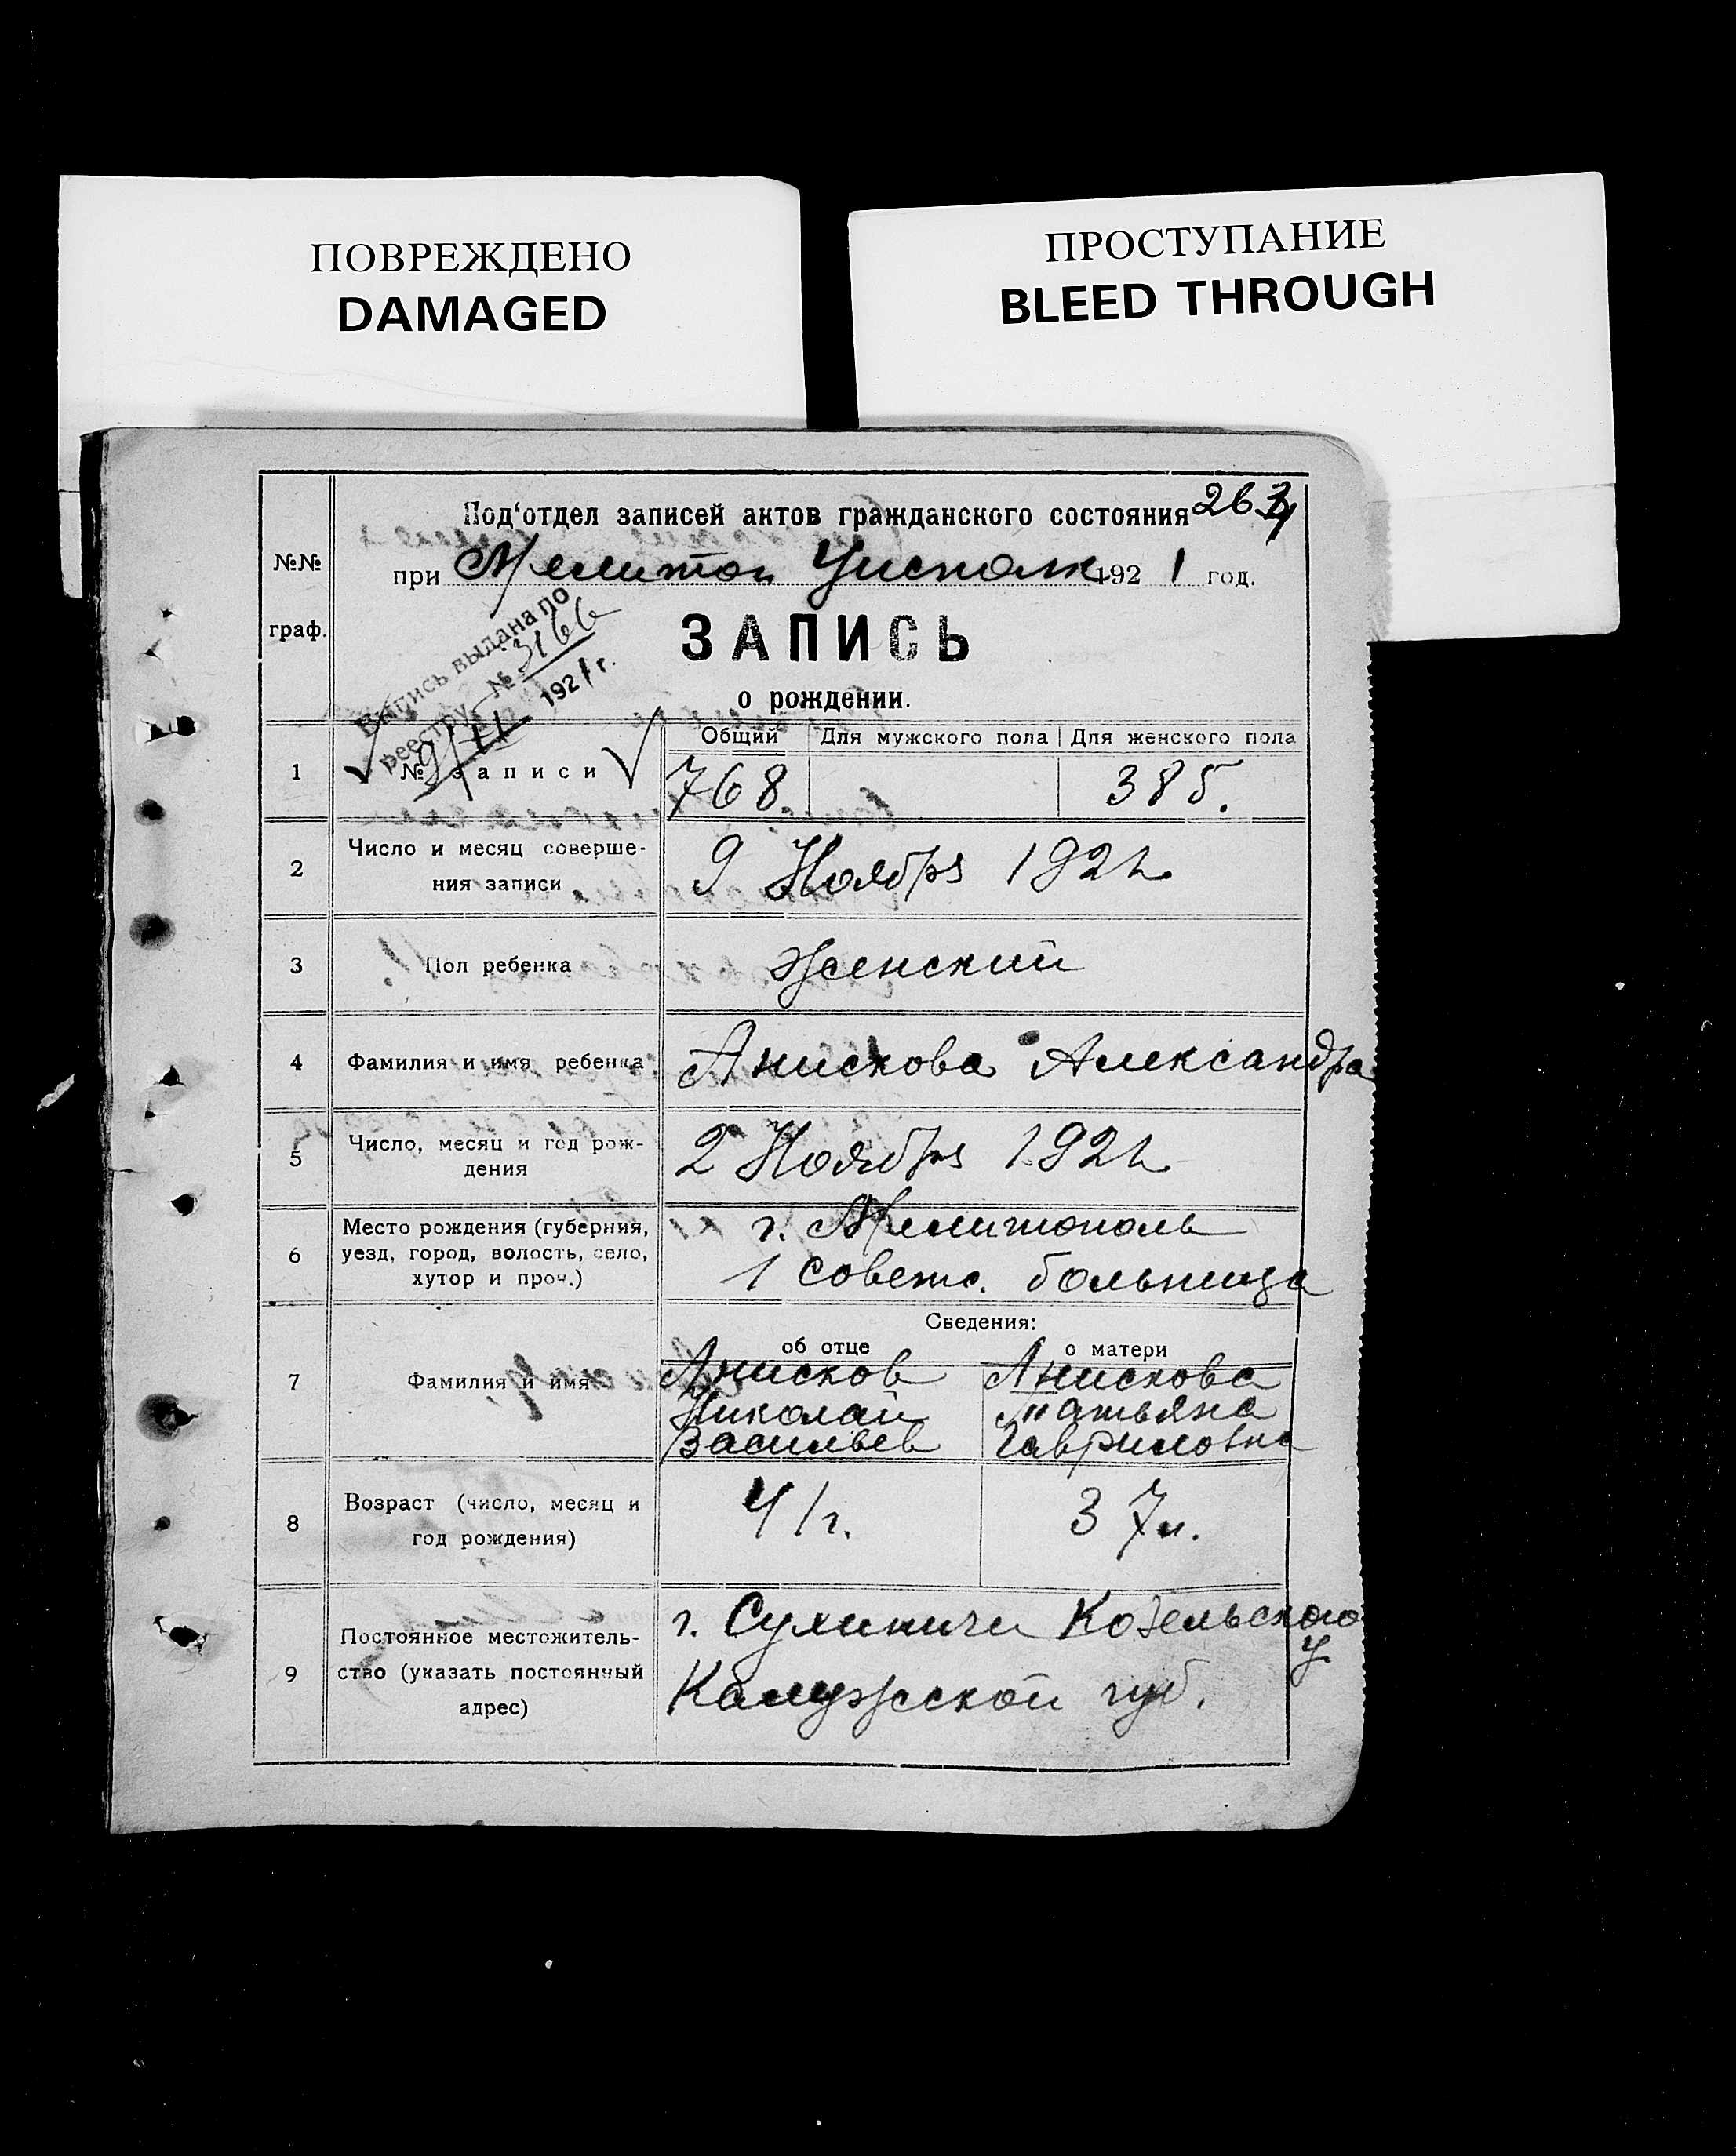 ПОВРЕЖДЕНО
DAMAGED
ПРОСТУПАНИЕ
BLEED THROUGH
№№
граф.
Под‘отдел записей актов гражданского состояния
при Мелитоп Уисполк 1921 год.
Выпись выдана по
реестру № 3166
9/XI 1921 г.
ЗАПИСЬ
о рождении.
Общий Для мужского пола Для женского пола
1 № записи 768. 385.
2 Число и месяц соверше-
ния записи
9 Ноября 1921
3 Пол ребенка Женский
4 Фамилия и имя ребенка Анискова Александра
5 Число, месяц и год рож-
дения
2 Ноября 1921
6 Место рождения (губерния,
уезд, город, волость, село,
хутор и проч.)
г. Мелитополь
1 советс. больница
Сведения:
об отце о матери
7 Фамилия и имя
Анисков Анискова
Николай Татьяна
Васильев Гавриловна
8 Возраст (число, месяц и
год рождения)
41 г. 37 л.
9 Постоянное местожитель-
ство (указать постоянный
адрес)
г. Сухиничи Козельского
у.
Калужской губ.